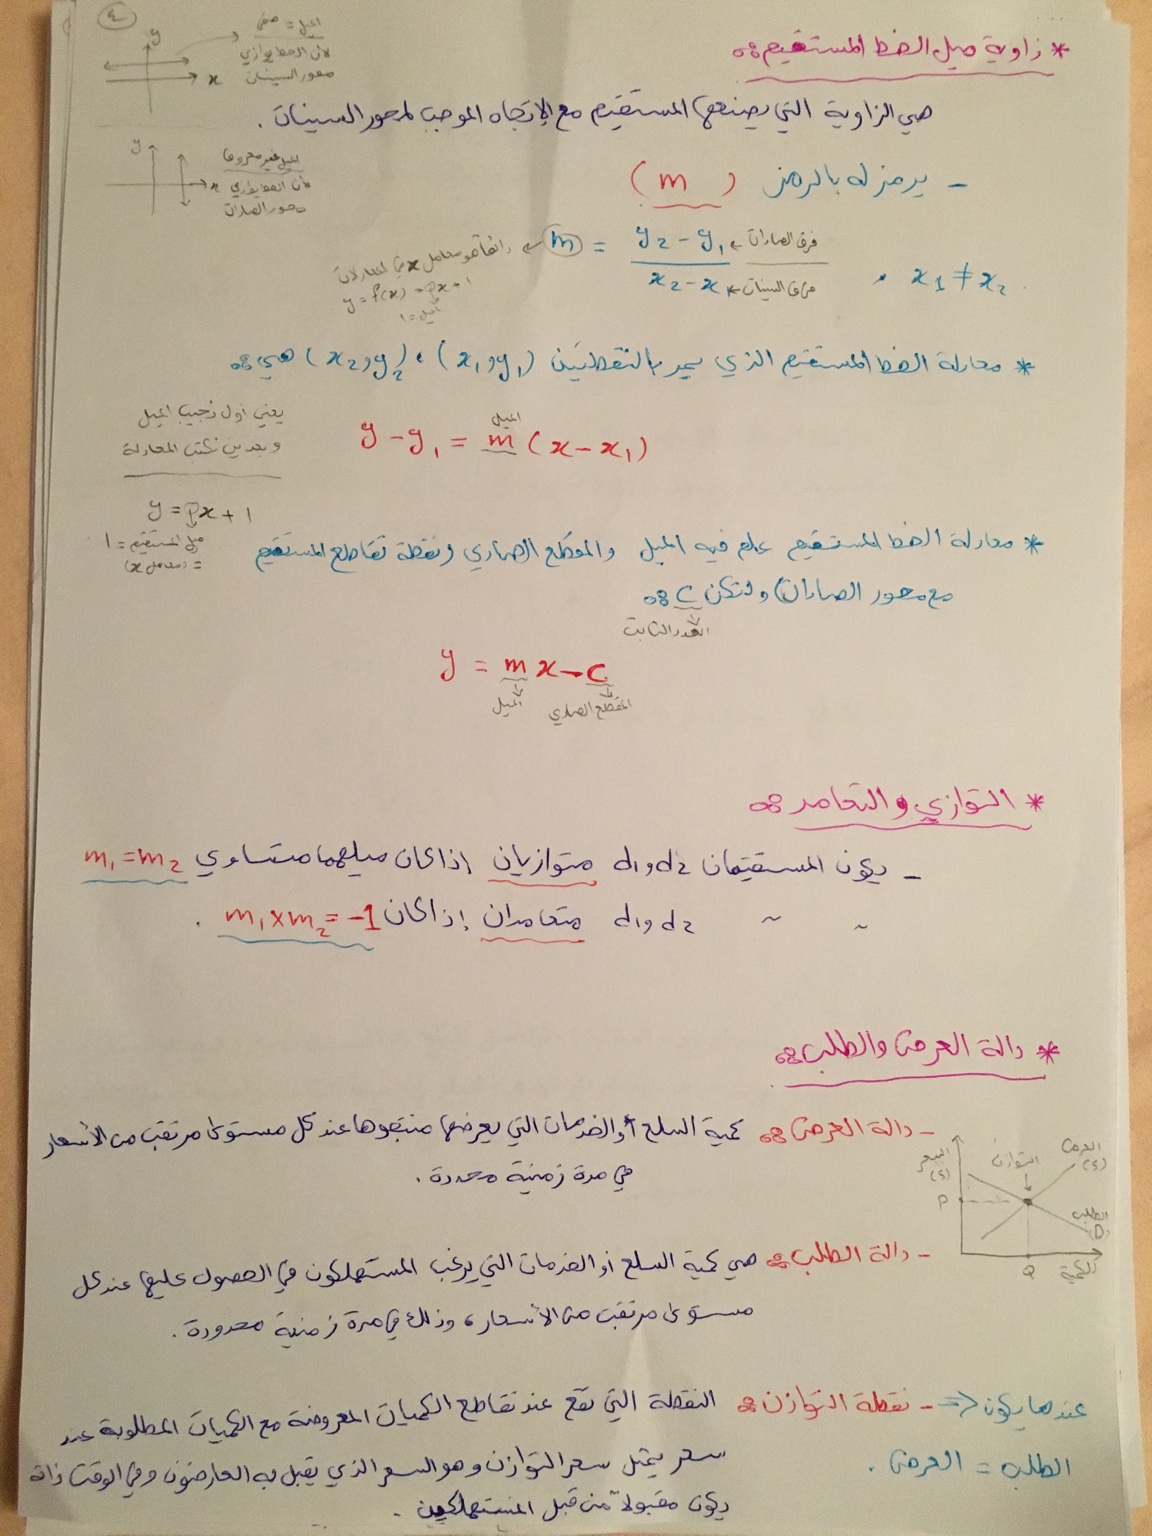 ٤
* زاوية ميل الخط المستقيم :
الميل = صفر
لأن الخط يوازي
محور السينات
y
x
هي الزاوية التي يصنعها المستقيم مع الإتجاه الموجب لمحور السينات .
y
x
الميل غير معروف
لأن الخط يوازي
محور الصادات
- يرمز له بالرمز ( m )
m = y₂ - y₁ / x₂ - x₁ , x₁ ≠ x₂
فرق الصادات
فرق السينات
دائما هو معامل x في المعادلات
y = f(x) = 1x + 1
الميل = 1
* معادلة الخط المستقيم الذي يمر بالنقطتين (x₁, y₁) ، (x₂, y₂) هي :
يعني أول نجيب الميل
وبعدين نكتب المعادلة
الميل
y - y₁ = m (x - x₁)
y = 1x + 1
ميل المستقيم = 1
= (معامل x)
* معادلة الخط المستقيم علم فيه الميل والمقطع الصادي ونقطة تقاطع المستقيم
مع محور الصادات) ولتكن C :
العدد الثابت
y = mx - c
الميل
المقطع الصادي
* التوازي والتعامد :
- يكون المستقيمان d₁ و d₂ متوازيان إذا كان ميلهما متساوي m₁ = m₂
~ ~ d₁ و d₂ متعامدان إذا كان m₁ x m₂ = -1 .
* دالة العرض والطلب :
- دالة العرض : كمية السلع أو الخدمات التي يعرضها منتجوها عند كل مستوى مرتقب من الأسعار
في مدة زمنية محددة .
السعر
التوازن
العرض
(S)
P
الطلب
(D)
Q
الكمية
- دالة الطلب : هي كمية السلع أو الخدمات التي يرغب المستهلكون في الحصول عليها عند كل
مستوى مرتقب من الأسعار ، وذلك في مدة زمنية محدودة .
- نقطة التوازن : النقطة التي تقع عند تقاطع الكميات المعروضة مع الكميات المطلوبة عند
سعر يمثل سعر التوازن وهو السعر الذي يقبل به العارضون وفي الوقت ذاته
يكون مقبولاً من قبل المستهلكين .
عندما يكون <=
الطلب = العرض .